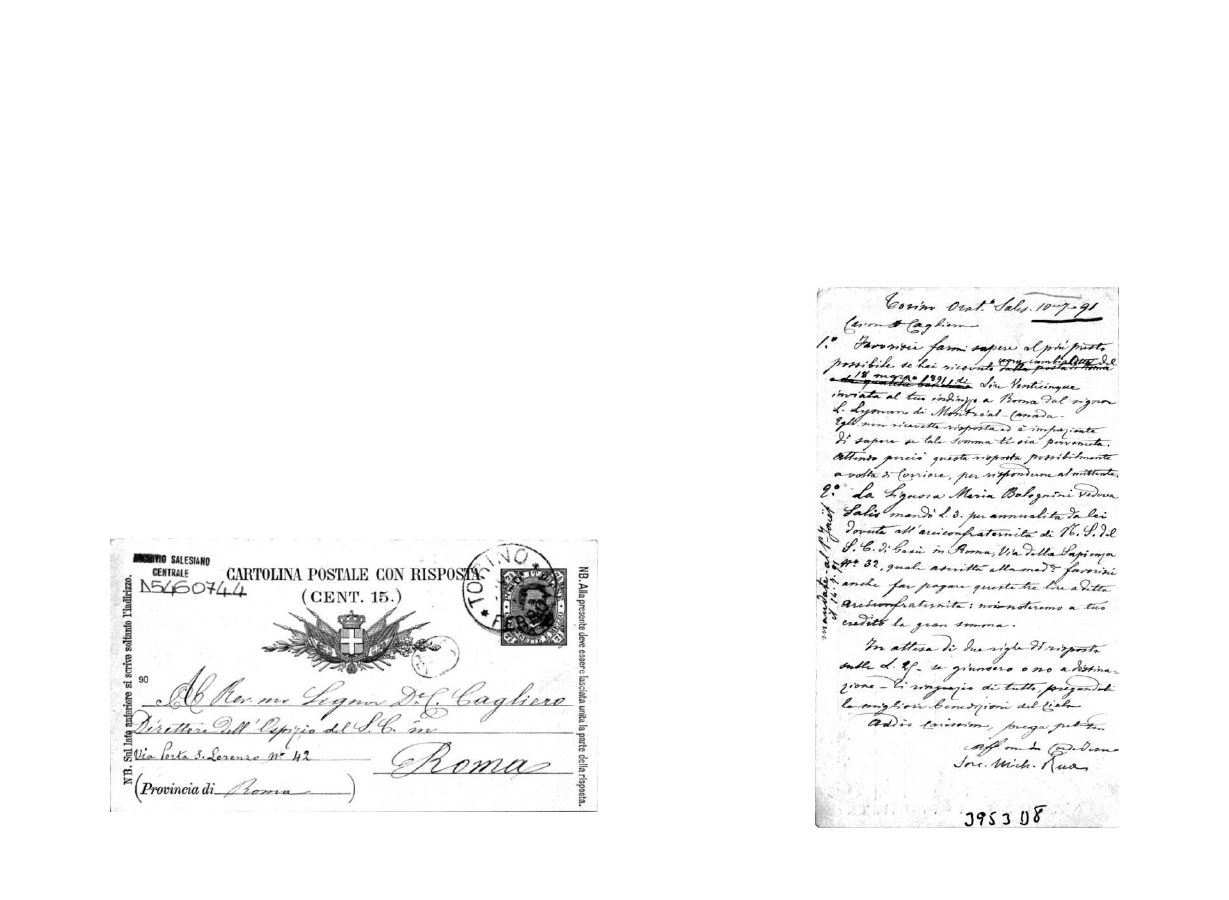 ARCHIVIO SALESIANO
CENTRALE
A5460744
CARTOLINA POSTALE CON RISPOSTA
(CENT. 15.)
TORINO
FERROVIA
NB. Sul lato anteriore si scrive soltanto l'indirizzo.
NB. Alla presente deve essere lasciata unita la parte della risposta.
90
Al Rev.mo Signor D. C. Cagliero
Direttore dell'Ospizio del S. C. in
Via Porta S. Lorenzo Nº 42
Roma
(Provincia di Roma)
Torino Orat.º Sales. 10-7-91
Cariss. D. Cagliero
1.º Favorisci farmi sapere al più presto
possibile se hai ricevuto del
18 marzo 1891 di Lire Venticinque
inviata al tuo indirizzo a Roma dal signor
L. Lyman di Montréal - Canadà.
Egli non ricevette risposta ed è impaziente
di sapere se tale somma ti sia pervenuta.
Attendo perciò questa risposta possibilmente
a volta di Corriere, per rispondere al mittente.
2.º La Signora Maria Bolognini vedova
Salis mandò L. 3. per annualità da lei
dovute all'arciconfraternita di N. S. del
S. C. di Gesù in Roma, Via della Sapienza
Nº 32, quale ascritta alla med.ª favorisci
anche far pagare queste tre lire a detta
arciconfraternita: noi noteremo a tuo
credito la gran somma.
In attesa di due righe di risposta
sulle L. 25 - se giunsero o no a destina-
zione - ti ringrazio di tutto pregandoti
le migliori benedizioni del Cielo
Addio carissimo, prega pel tuo
Aff.mo in
Sac. Mich. Rua
3953 D8